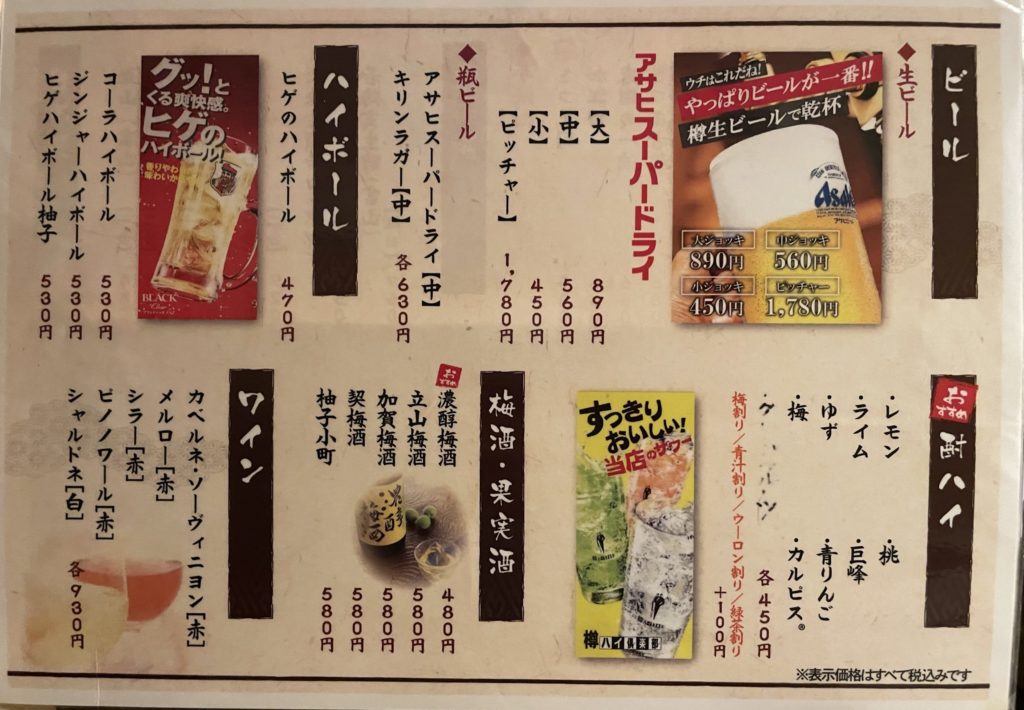 ビール
◆生ビール
ウチはこれだね!
やっぱりビールが一番!!
樽生ビールで乾杯
Asahi
大ジョッキ
890円
中ジョッキ
560円
小ジョッキ
450円
ピッチャー
1,780円
アサヒスーパードライ
【大】 890円
【中】 560円
【小】 450円
【ピッチャー】 1,780円
◆瓶ビール
アサヒスーパードライ【中】
キリンラガー【中】
各630円
ハイボール
ヒゲのハイボール 470円
グッ!と
くる爽快感。
ヒゲの
ハイボール!
香りやわらか
BLACK
コーラハイボール 530円
ジンジャーハイボール 530円
ヒゲハイボール柚子 530円
おすすめ
酎ハイ
・レモン
・ライム
・ゆず
・梅
・桃
・巨峰
・青りんご
・カルピス®
各450円
梅割り/青汁割り/ウーロン割り/緑茶割り
+100円
すっきり
おいしい!
当店のサワー
樽ハイ倶楽部
梅酒・果実酒
おすすめ
濃醇梅酒 480円
立山梅酒 580円
加賀梅酒 580円
契梅酒 580円
柚子小町 580円
ワイン
カベルネ・ソーヴィニヨン[赤]
メルロー[赤]
シラー[赤]
ピノノワール[赤]
シャルドネ[白]
各930円
※表示価格はすべて税込みです